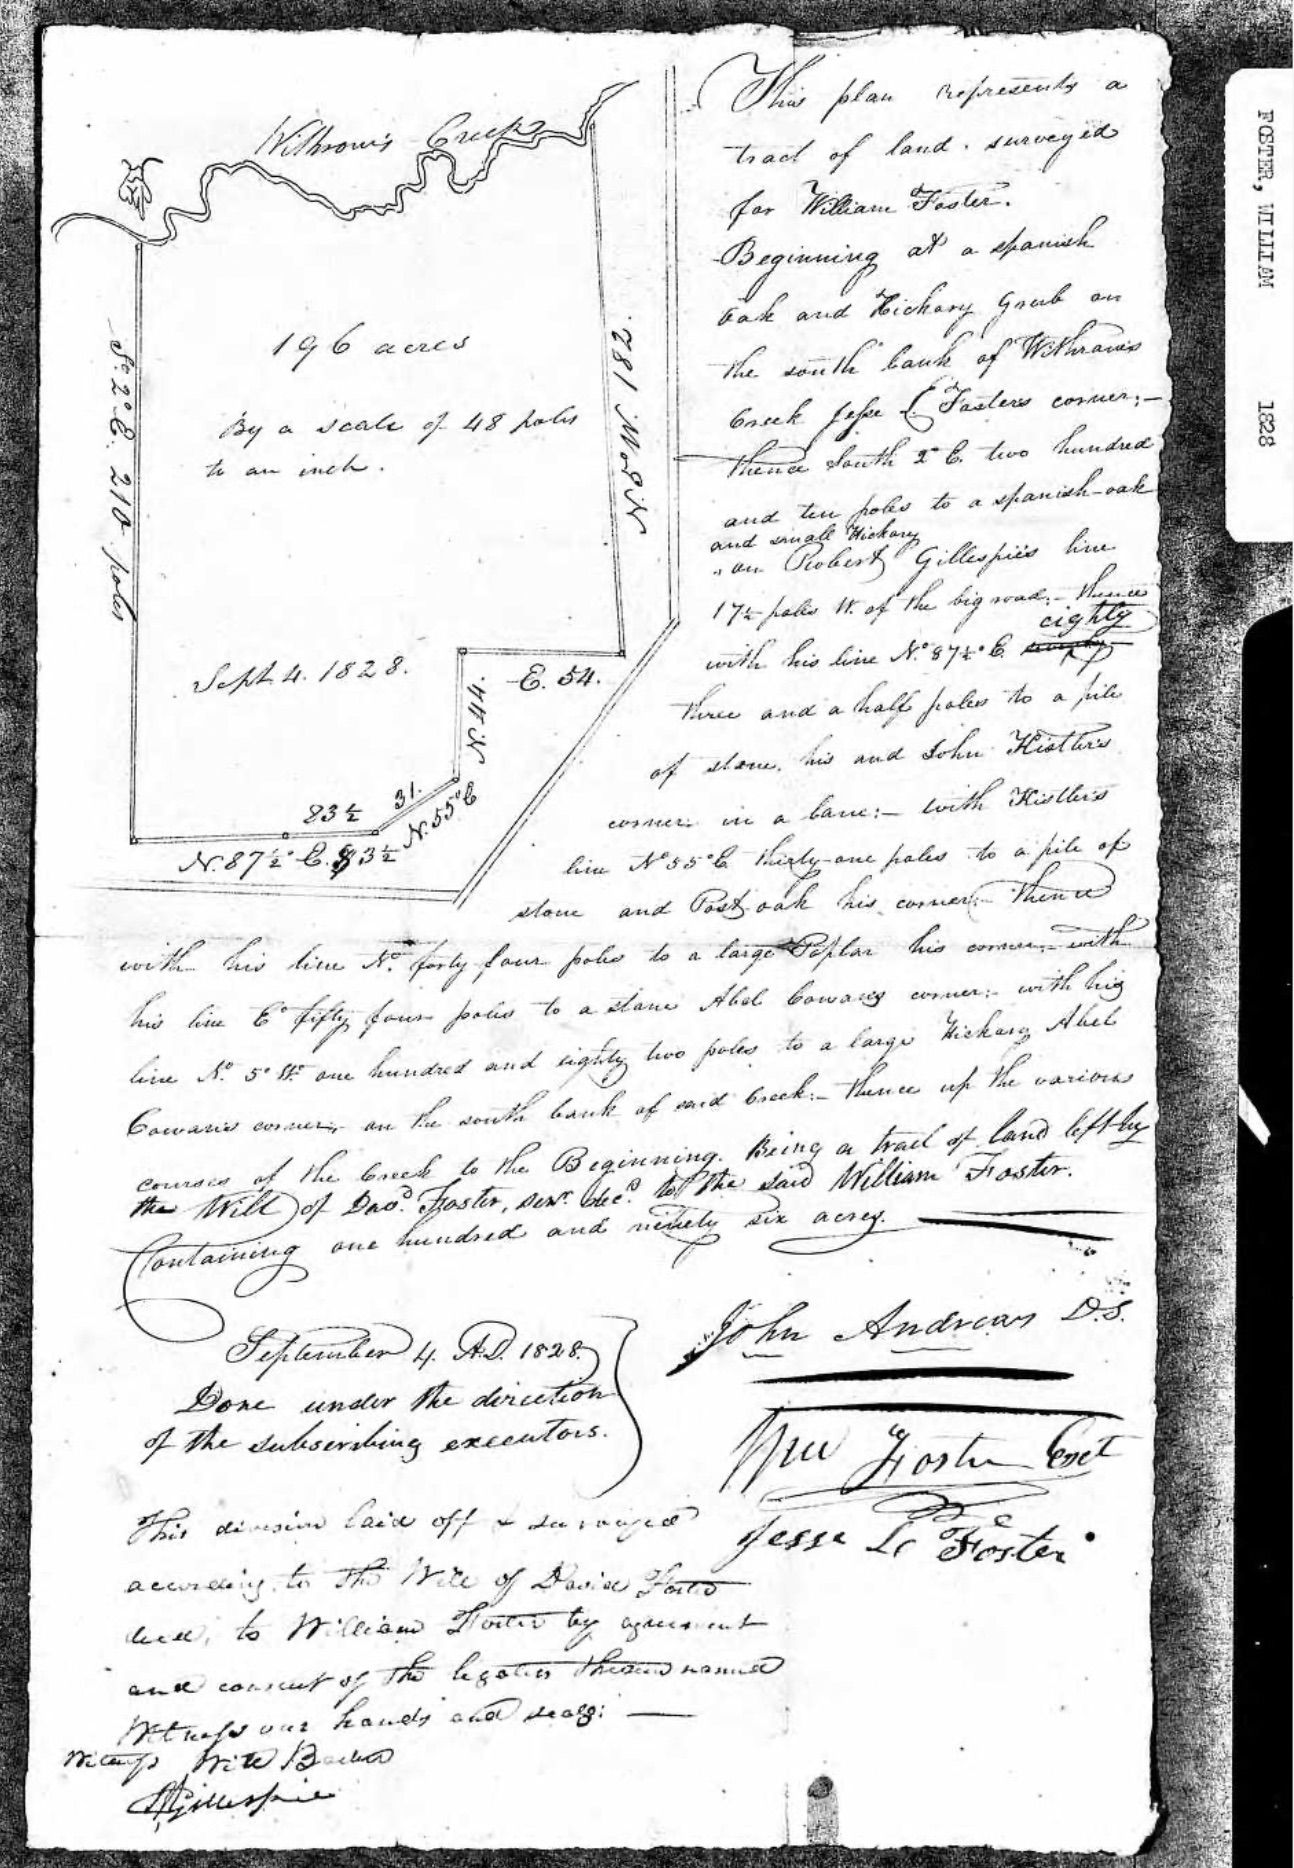 Withrow's Creek
196 acres
By a scale of 48 poles
to an inch.
So. 2° E. 210 poles
N. 5° W. 182.
Sept. 4. 1828.
E. 54.
N. 44.
31.
N. 55° E
83 ½
N. 87 ½° E. 83 ½
This plan represents a
tract of land surveyed
for William Foster.
Beginning at a spanish
oak and Hickory Grub on
the south bank of Withrow's
Creek Jesse L. Foster's corner;—
thence South 2° E. two hundred
and ten poles to a spanish-oak
and small Hickory
on Robert Gillespie's line
17 ½ poles W. of the big road;— thence
eighty
with his line No. 87 ½° E.
three and a half poles to a pile
of stone, his and John Kistler's
corner in a lane;— with Kistler's
line No 55° E thirty-one poles to a pile of
stone and Post oak his corner;— thence
with his line No. forty four poles to a large Poplar his corner;— with
his line Eo fifty four poles to a stone Abel Cowan's corner;— with his
line No. 5° W. one hundred and eighty two poles to a large Hickory Abel
Cowan's corner, on the south bank of said Creek;— thence up the various
courses of the Creek to the Beginning. Being a tract of land left by
the Will of Davd. Foster, senr. decd. to the said William Foster.
Containing one hundred and ninety six acres.
September 4. A.D. 1828.
Done under the direction
of the subscribing executors.
John Andrews D.S.
Wm Foster Exct
Jesse L Foster
This division laid off & surveyed
according to the Will of David Foster
decd, to William Foster by agreement
and consent of the legatees therein named
Witness our hands and seals: —
Witness Will
Gillespie
FOSTER, WILLIAM 1828